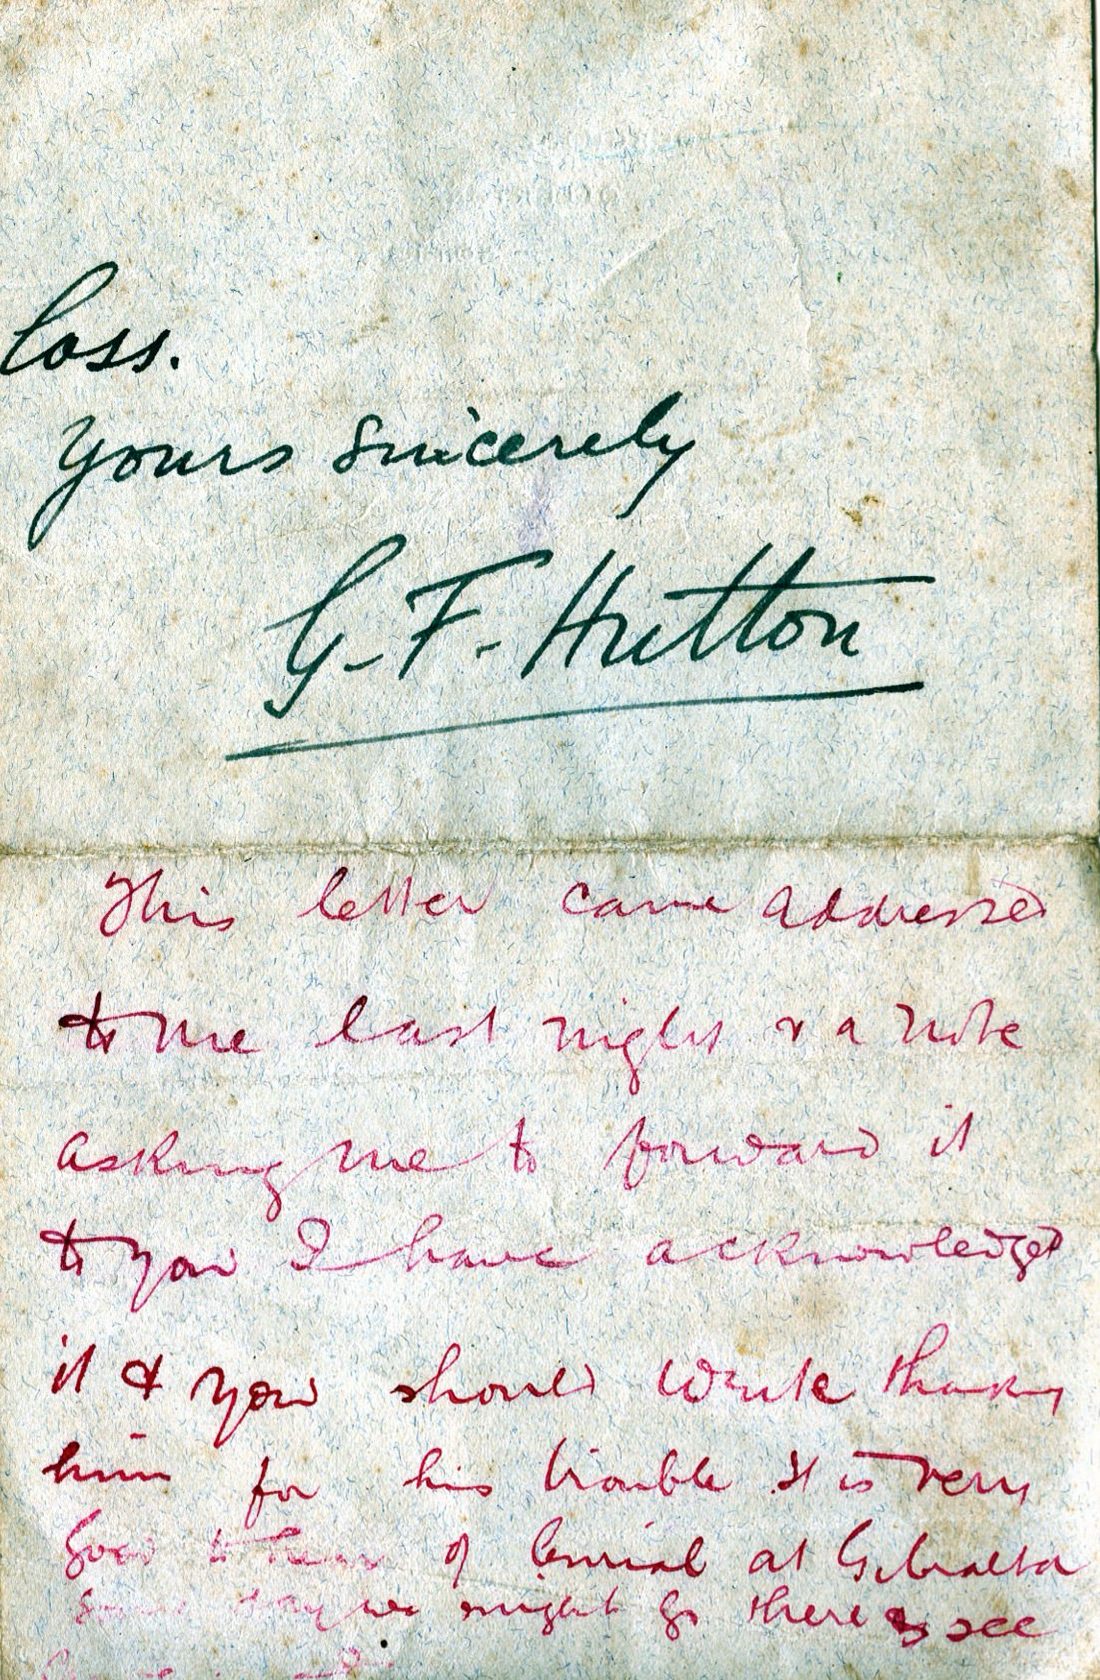 loss.
Yours sincerely
G-F-Hutton
This letter came addressed
to me last night & a note
asking me to forward it
to you I have acknowledged
it & you should write thanking
him for his trouble. It is very
good to hear of burial at Gibraltar
some day we might go there & see